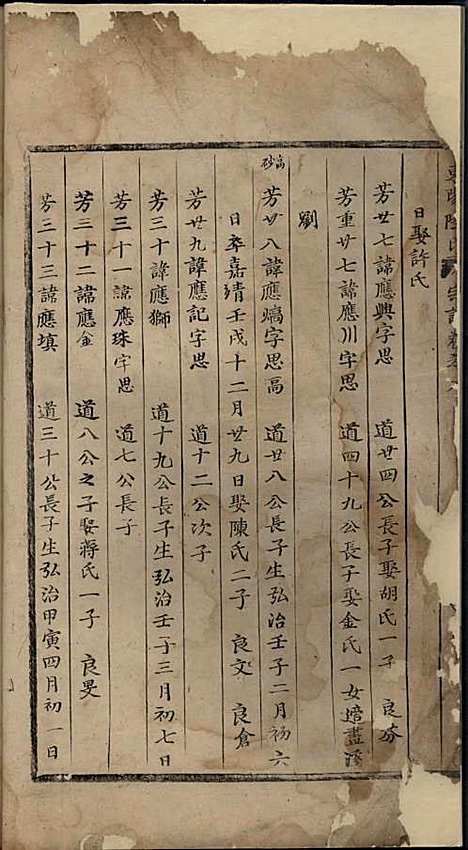 日娶許氏
芳廿七諱應興字思 道廿四公長子娶胡氏一子 良
芳重廿七諱應川字思 道四十九公長子娶金氏一女適
劉
高砂
芳廿八諱應熇字思高 道廿八公長子生弘治壬子二月初六
日卒嘉靖壬戌十二月廿九日娶陳氏二子 良文 良倉
芳廿九諱應記字思 道十二公次子
芳三十諱應獅 道十九公長子生弘治壬子三月初七日
芳三十一諱應珠字思 道七公長子
芳三十二諱應金 道八公之子娶蔣氏一子 良旻
芳三十三諱應填 道三十公長子生弘治甲寅四月初一日